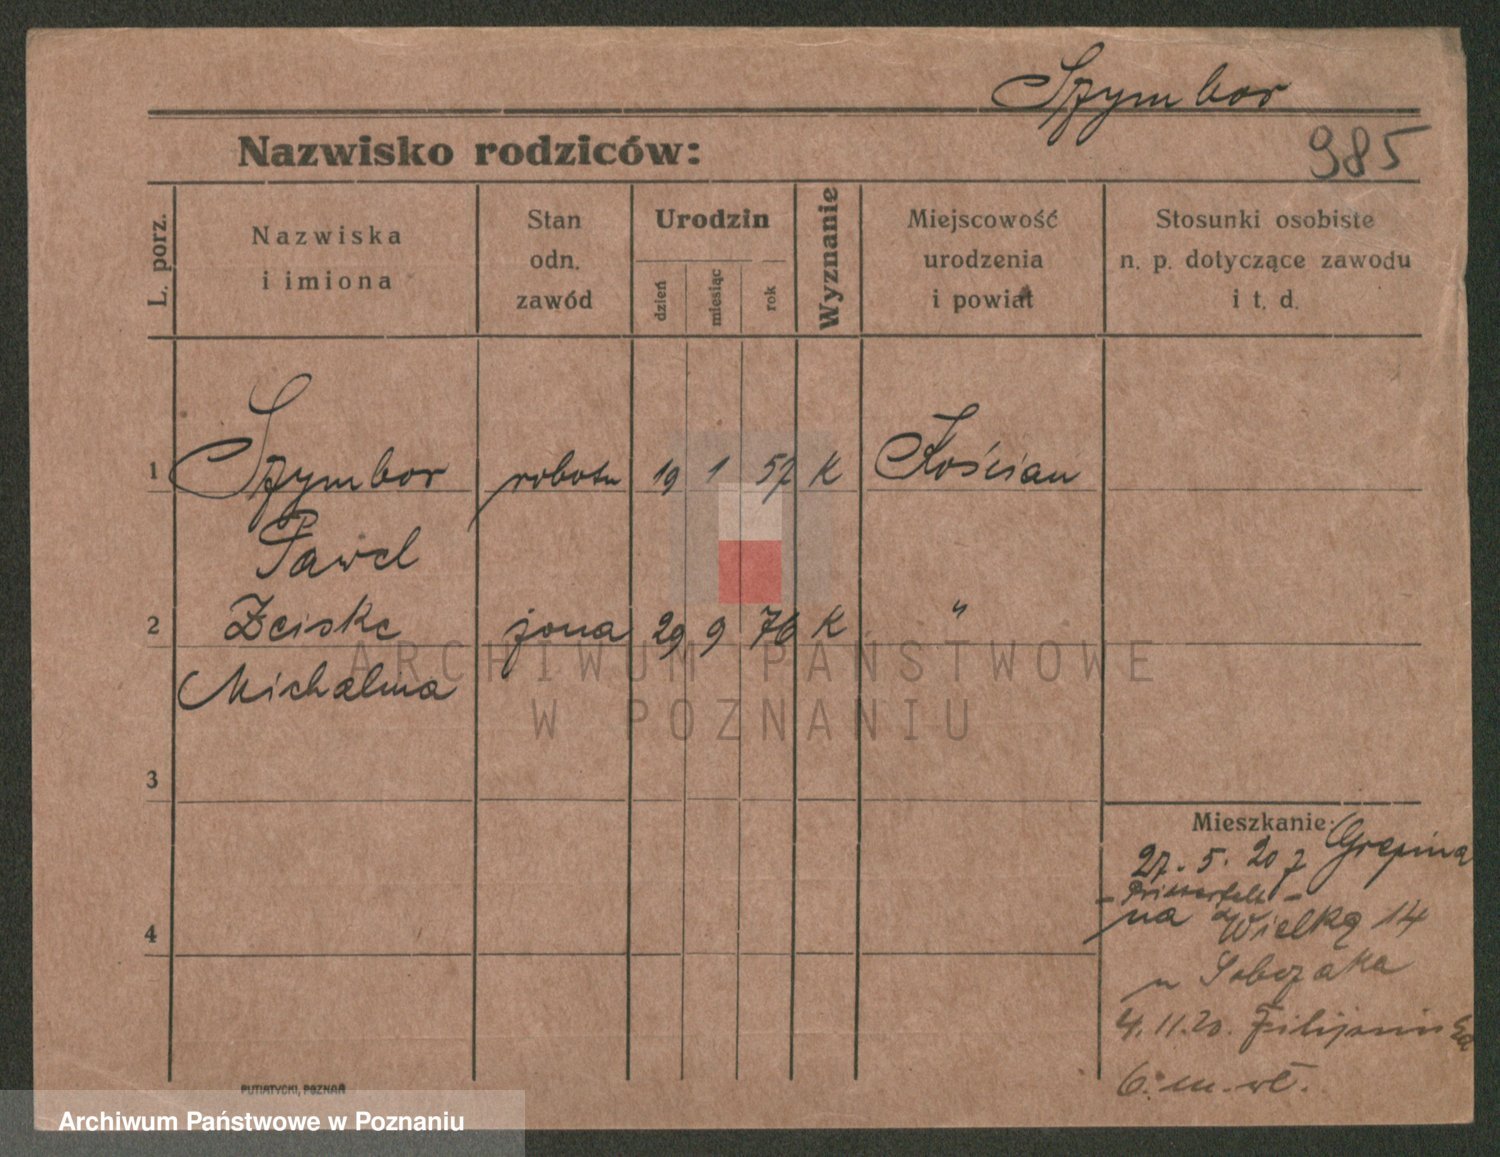 Szymbor
Nazwisko rodziców:
985
L. porz.
Nazwiska
i imiona
Stan
odn.
zawód
Urodzin
dzień
miesiąc
rok
Wyznanie
Miejscowość
urodzenia
i powiat
Stosunki osobiste
n. p. dotyczące zawodu
i t. d.
1 Szymbor robotn 19 1 57 K Kościan
Paweł
2 Zeiske żona 29 9 76 K "
Michalina
3
4
Mieszkanie:
27. 5. 20 z
na Wielką 14
u Sobczaka
4. 11. 20.
6. m. wł.
PUTIATYCKI, POZNAŃ
ARCHIWUM PAŃSTWOWE
W POZNANIU
Archiwum Państwowe w Poznaniu